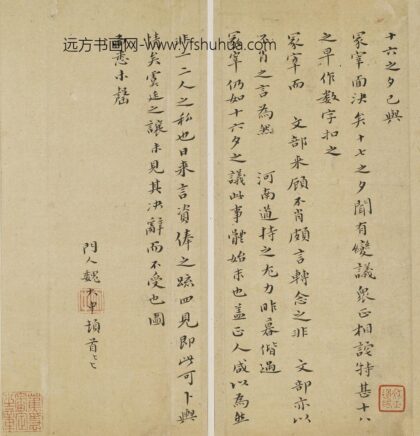 远方书画网 www.yfshuhua.com
十六之夕已與
冢宰面決矣十七之夕聞有變議衆正相議特甚十八
之早作數字扣之
冢宰而 文部來顧不肖頗言轉念之非 文部亦以
不肖之言為然 河南道持之尤力昨暮偕過
冢宰仍如十六夕之議此事體始末也蓋正人咸以為然
非一二人之私也日來言資俸之疏四見即此可卜輿
情矣寰廷之讓未見其決辭而不受也圖
晤悉不罄
門人魏大中頓首